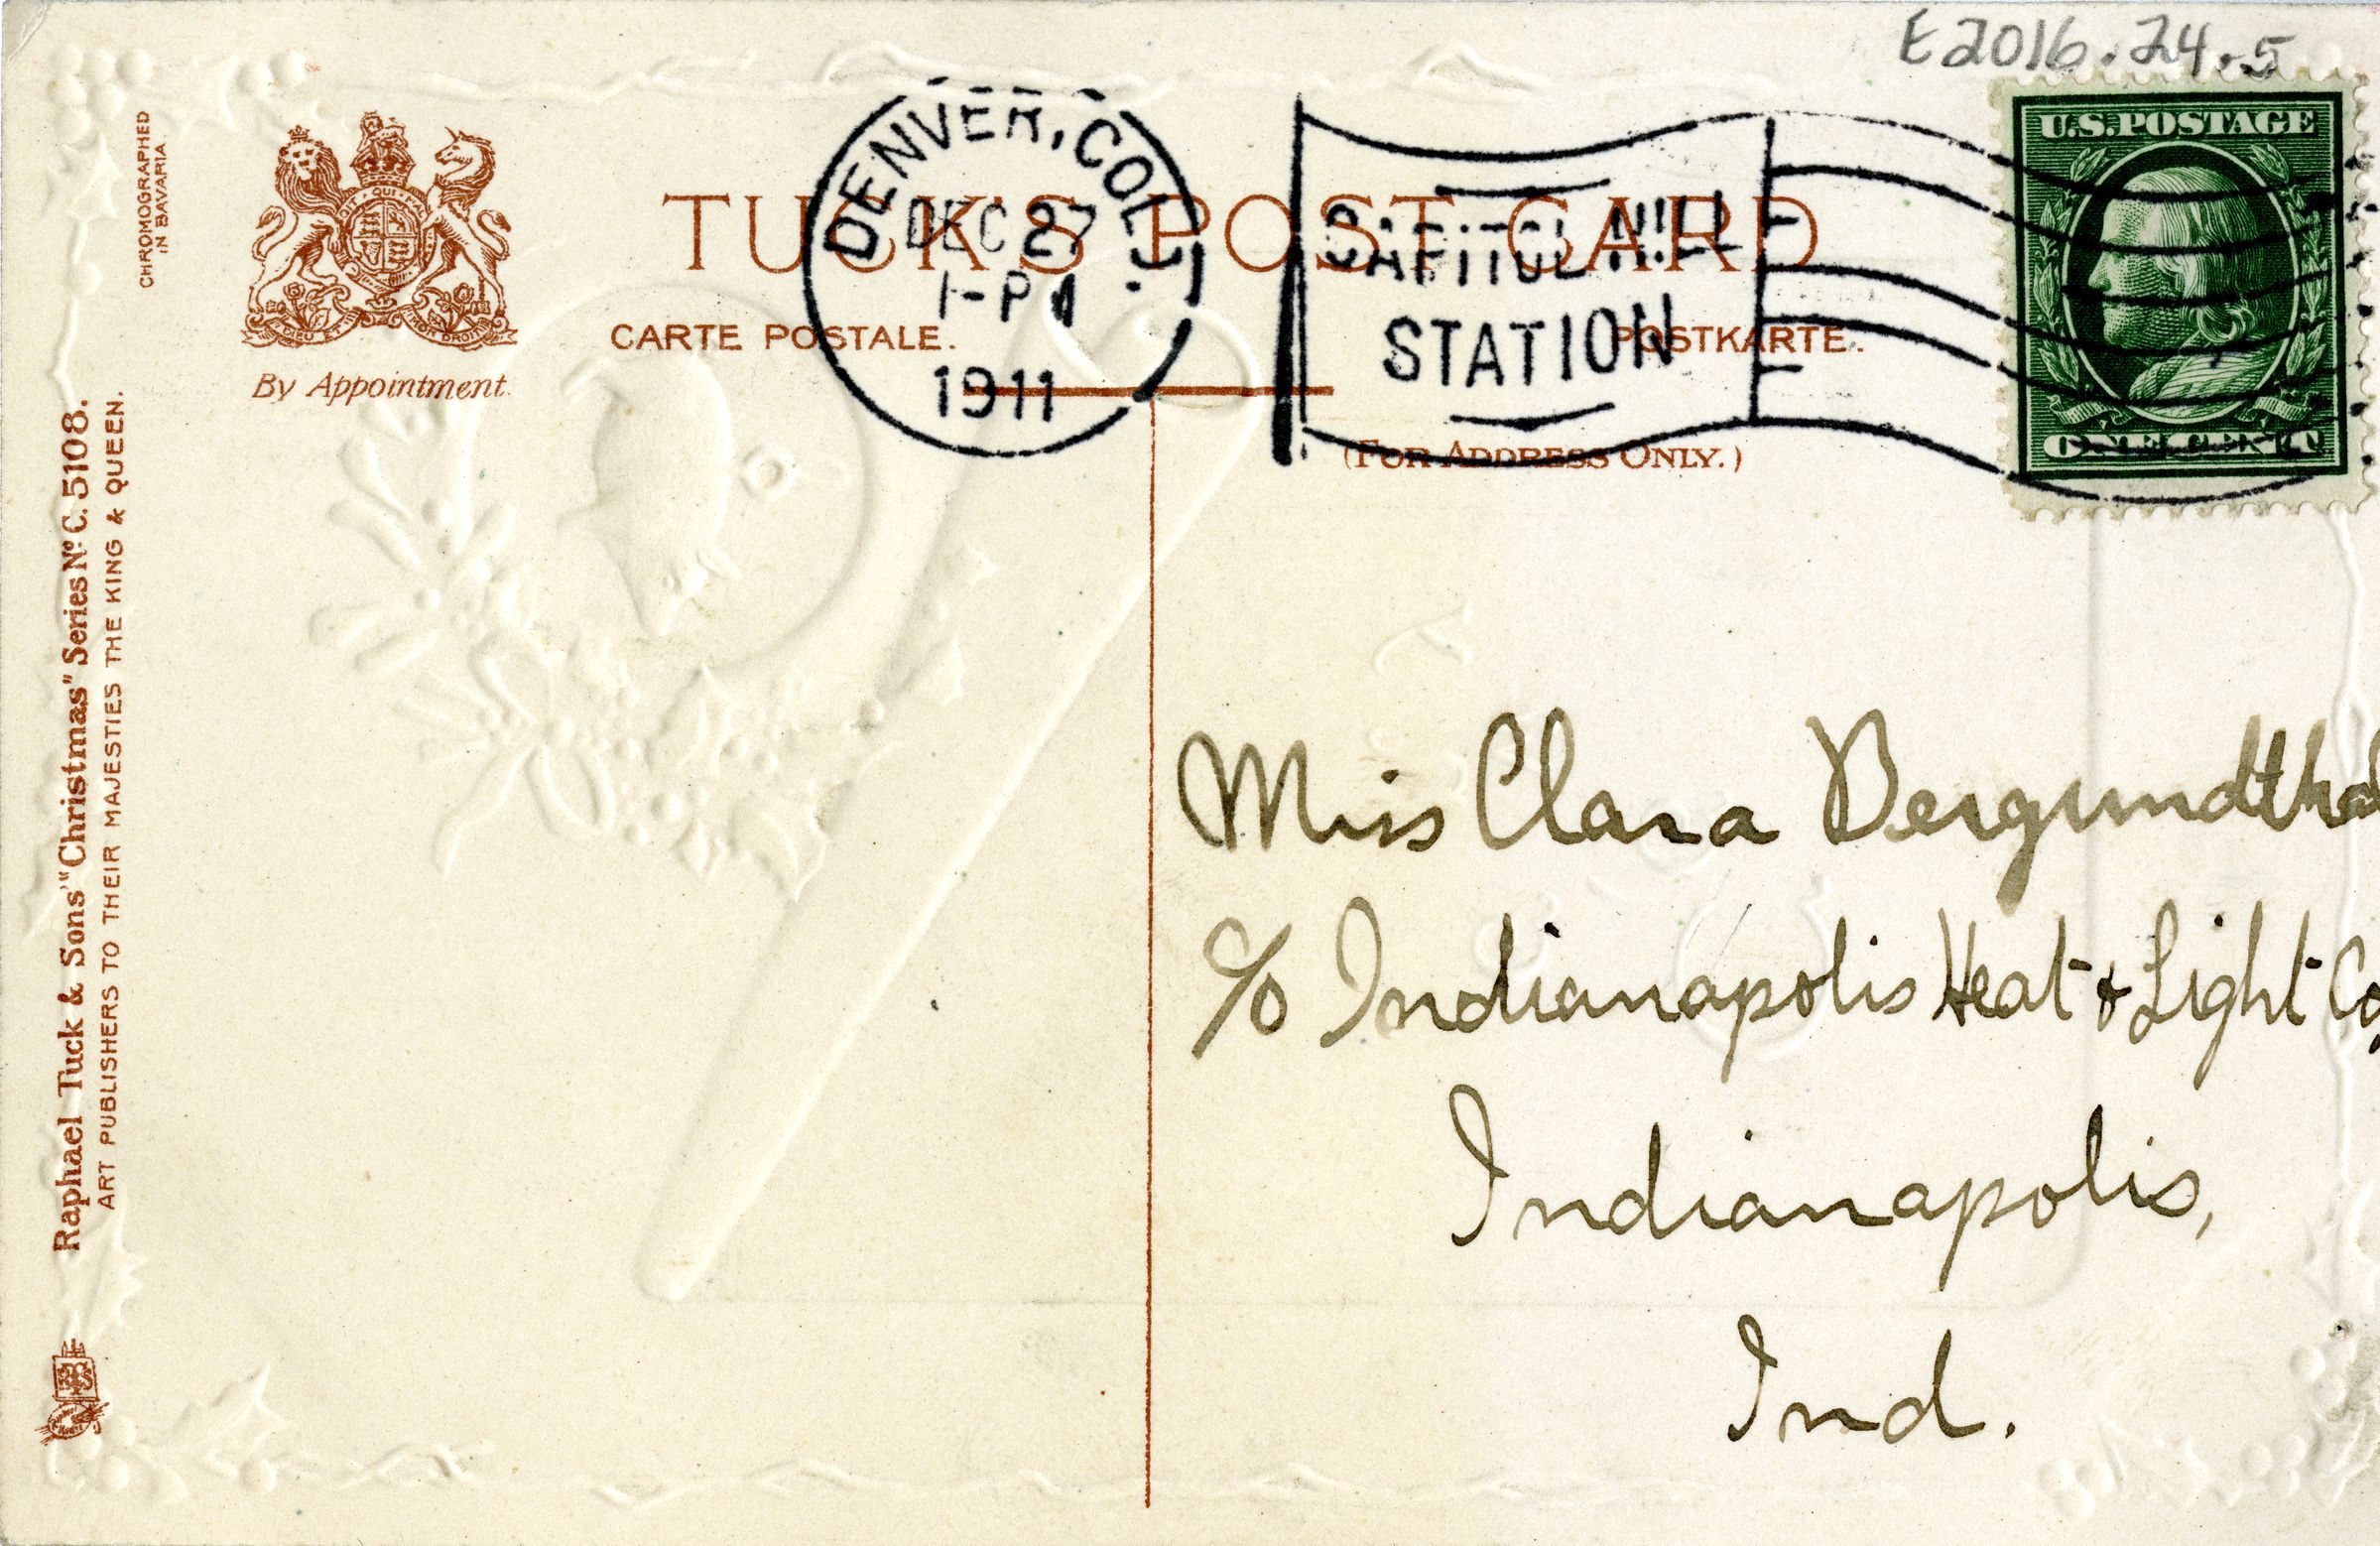 E2016.24.5
CHROMOGRAPHED
IN BAVARIA
By Appointment.
TUCK'S POST CARD
CARTE POSTALE.
POSTKARTE.
(FOR ADDRESS ONLY.)
DENVER, COLO.
DEC 27
1-PM
1911
CAPITOL HILL
STATION
U.S.POSTAGE
ONE CENT
Raphael Tuck & Sons' "Christmas" Series No C. 5108.
ART PUBLISHERS TO THEIR MAJESTIES THE KING & QUEEN.
Miss Clara Bergundthal
c/o Indianapolis Heat & Light Co.
Indianapolis,
Ind.